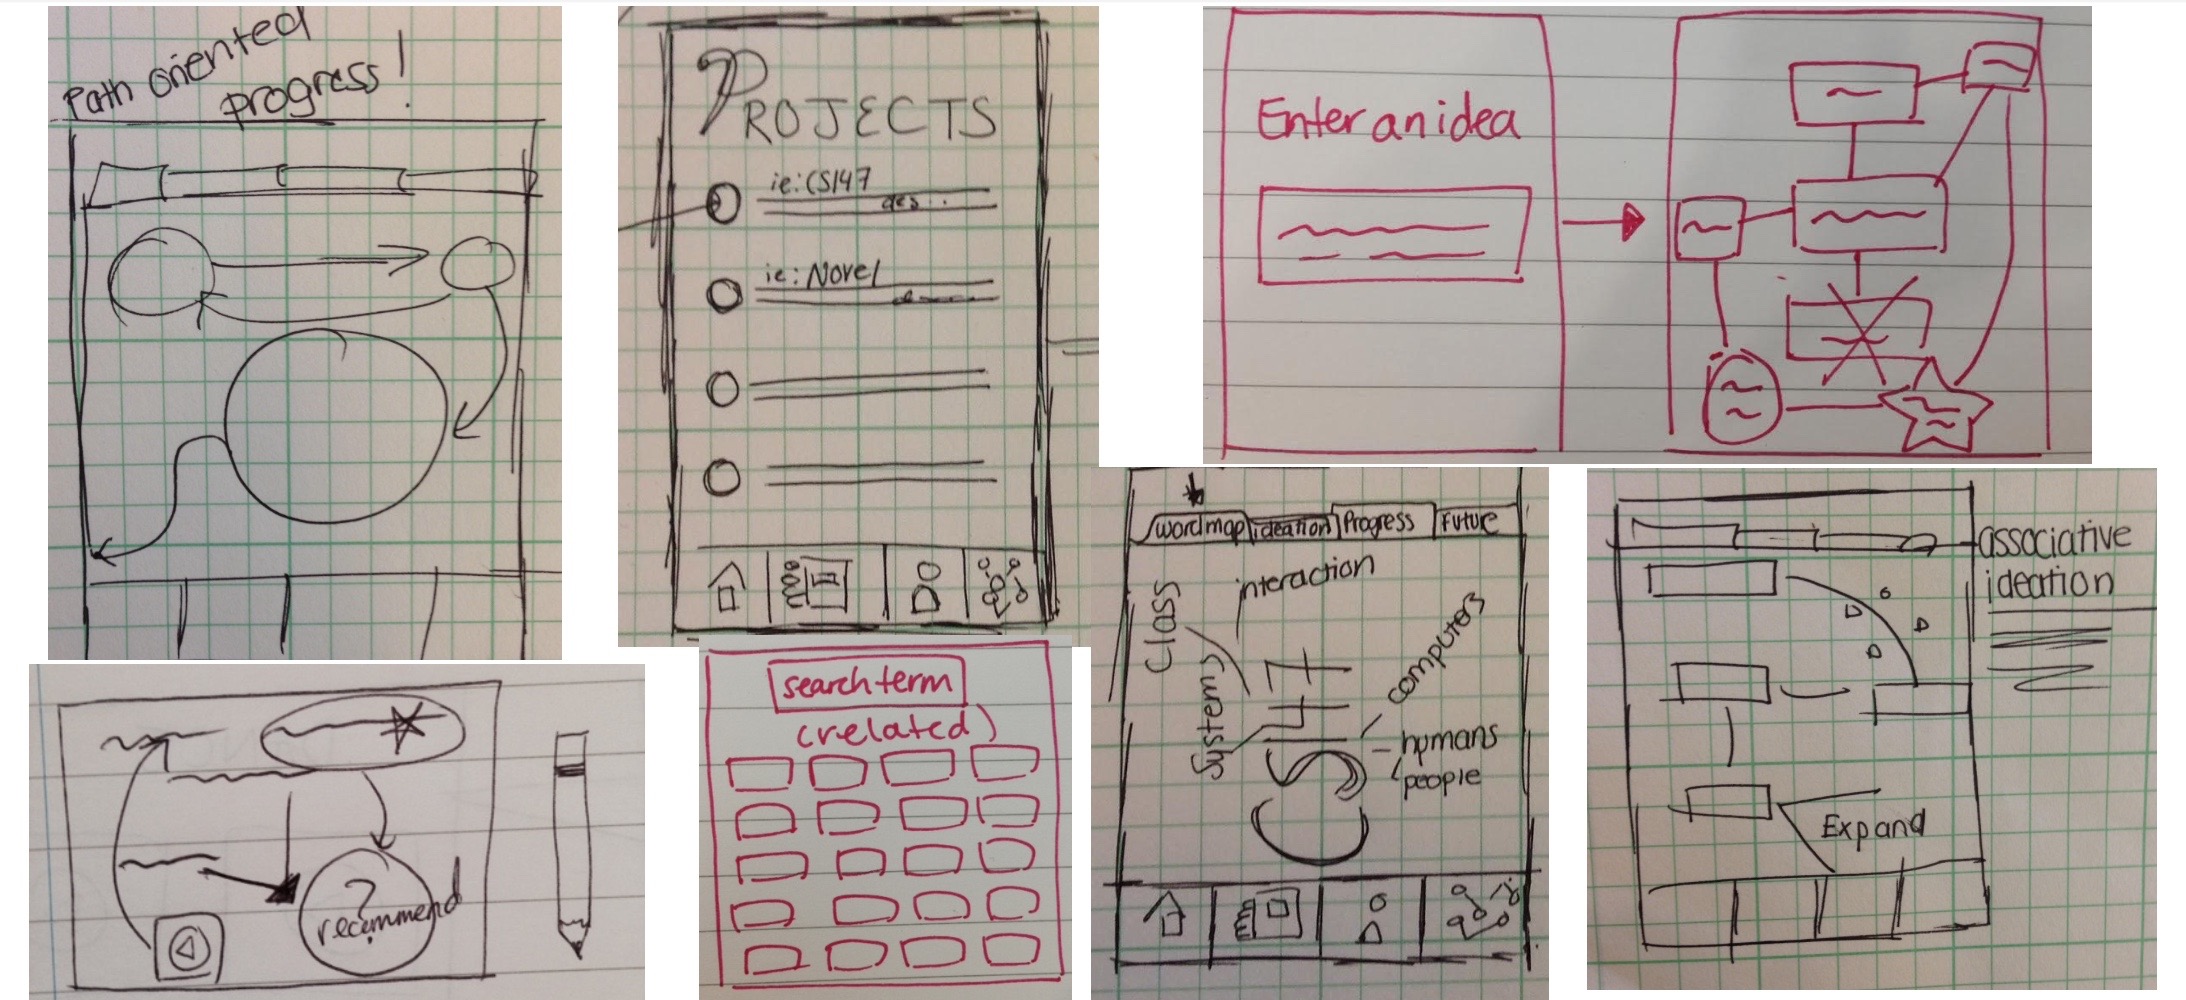 Path oriented
progress!
PROJECTS
ie: CS147
des..
ie: Novel
Enter an idea
search term
(related)
wordmap ideation Progress Future
interaction
class
systems
CS147
computers
humans
people
associative
ideation
Expand
?
recommend